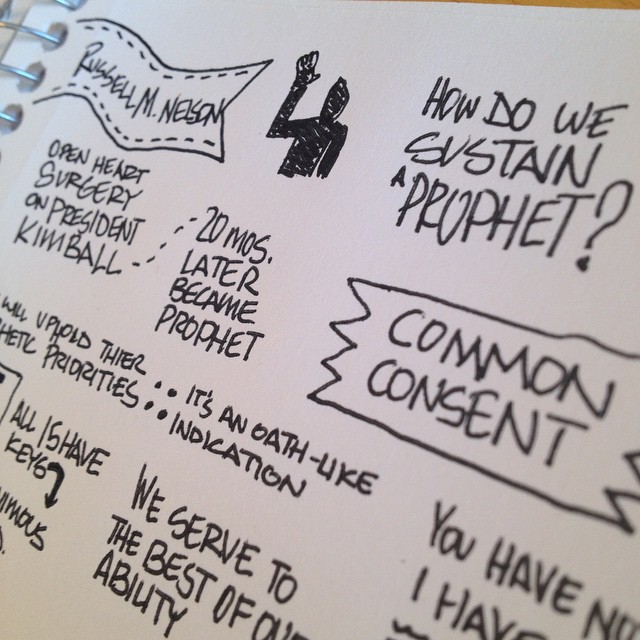 RUSSELL M. NELSON
OPEN HEART
SURGERY
ON PRESIDENT
KIMBALL
20 MOS.
LATER
BECAME
PROPHET
HOW DO WE
SUSTAIN
A PROPHET?
COMMON
CONSENT
WILL UPHOLD THIER
PRIORITIES
IT'S AN OATH-LIKE
INDICATION
ALL 15 HAVE
KEYS
WE SERVE TO
THE BEST OF OUR
ABILITY
YOU HAVE
I HAVE